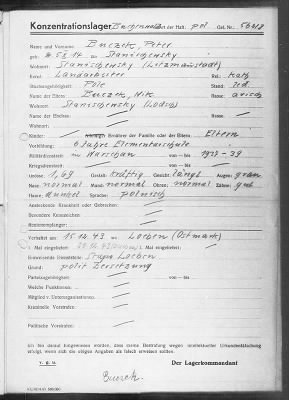 Konzentrationslager Buchenwald Art der Haft: pol Gef. Nr.: 
Name und Vorname: Buczek, Peter
geb.: 14 zu: Stanischewsky
Wohnort: Stanischewsky (Litzmannstadt)
Beruf: Landarbeiter Rel.: kath
Staatsangehörigkeit: Pole Stand: led
Name der Eltern: Buczek, Rasse: arisch
Wohnort: Stanischewsky (Lodsch)
Name der Ehefrau: Rasse:
Wohnort:
Kinder: Ernährer der Familie oder der Eltern: Eltern
Vorbildung: 6 Jahre Elementarschule
Militärdienstzeit: in Warschau von — bis 1938-39
Kriegsdienstzeit: von — bis
Größe: 1,69 Gestalt: kräftig Gesicht: längl. Augen: grau
Nase: normal Mund: normal Ohren: normal Zähne: gut
Haare: dunkel Sprache: polnisch
Ansteckende Krankheit oder Gebrechen:
Besondere Kennzeichen:
Rentenempfänger:
Verhaftet am: 15.12.43 wo: Loeben (Ostmark)
1. Mal eingeliefert: 2. Mal eingeliefert:
Einweisende Dienststelle: Stapo Loeben
Grund: polit Zersetzung
Parteizugehörigkeit: von — bis
Welche Funktionen:
Mitglied v. Unterorganisationen:
Kriminelle Vorstrafen:
Politische Vorstrafen:
Ich bin darauf hingewiesen worden, dass meine Bestrafung wegen intellektueller Urkundenfälschung
erfolgt, wenn sich die obigen Angaben als falsch erweisen sollten.
v. g. u. Der Lagerkommandant
Buczek